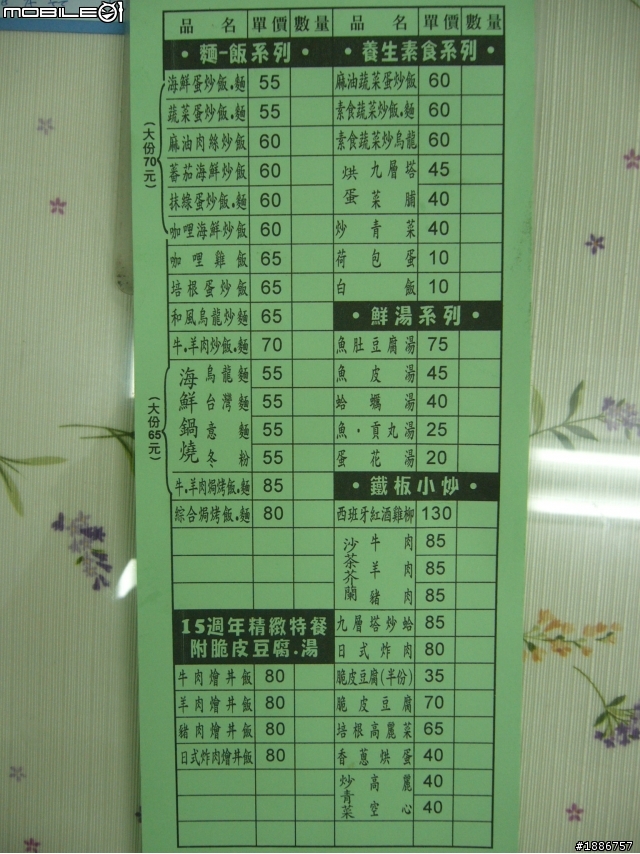 MOBILE01
品名 單價 數量
麵-飯系列
海鮮蛋炒飯.麵 55
蔬菜蛋炒飯.麵 55
麻油肉絲炒飯 60
蕃茄海鮮炒飯 60
抹綠蛋炒飯.麵 60
咖哩海鮮炒飯 60
(大份70元)
咖哩雞飯 65
培根蛋炒飯 65
和風烏龍炒麵 65
牛.羊肉炒飯.麵 70
海鮮鍋燒
烏龍麵 55
台灣麵 55
意麵 55
冬粉 55
(大份65元)
牛.羊肉焗烤飯.麵 85
綜合焗烤飯.麵 80
15週年精緻特餐
附脆皮豆腐.湯
牛肉燴丼飯 80
羊肉燴丼飯 80
豬肉燴丼飯 80
日式炸肉燴丼飯 80
品名 單價 數量
養生素食系列
麻油蔬菜蛋炒飯 60
素食蔬菜炒飯.麵 60
素食蔬菜炒烏龍 60
烘蛋
九層塔 45
菜脯 40
炒青菜 40
荷包蛋 10
白飯 10
鮮湯系列
魚肚豆腐湯 75
魚皮湯 45
蛤蠣湯 40
魚.貢丸湯 25
蛋花湯 20
鐵板小炒
西班牙紅酒雞柳 130
沙茶芥蘭
牛肉 85
羊肉 85
豬肉 85
九層塔炒蛤 85
日式炸肉 80
脆皮豆腐(半份) 35
脆皮豆腐 70
培根高麗菜 65
香蔥烘蛋 40
炒青菜
高麗 40
空心 40
#1886757